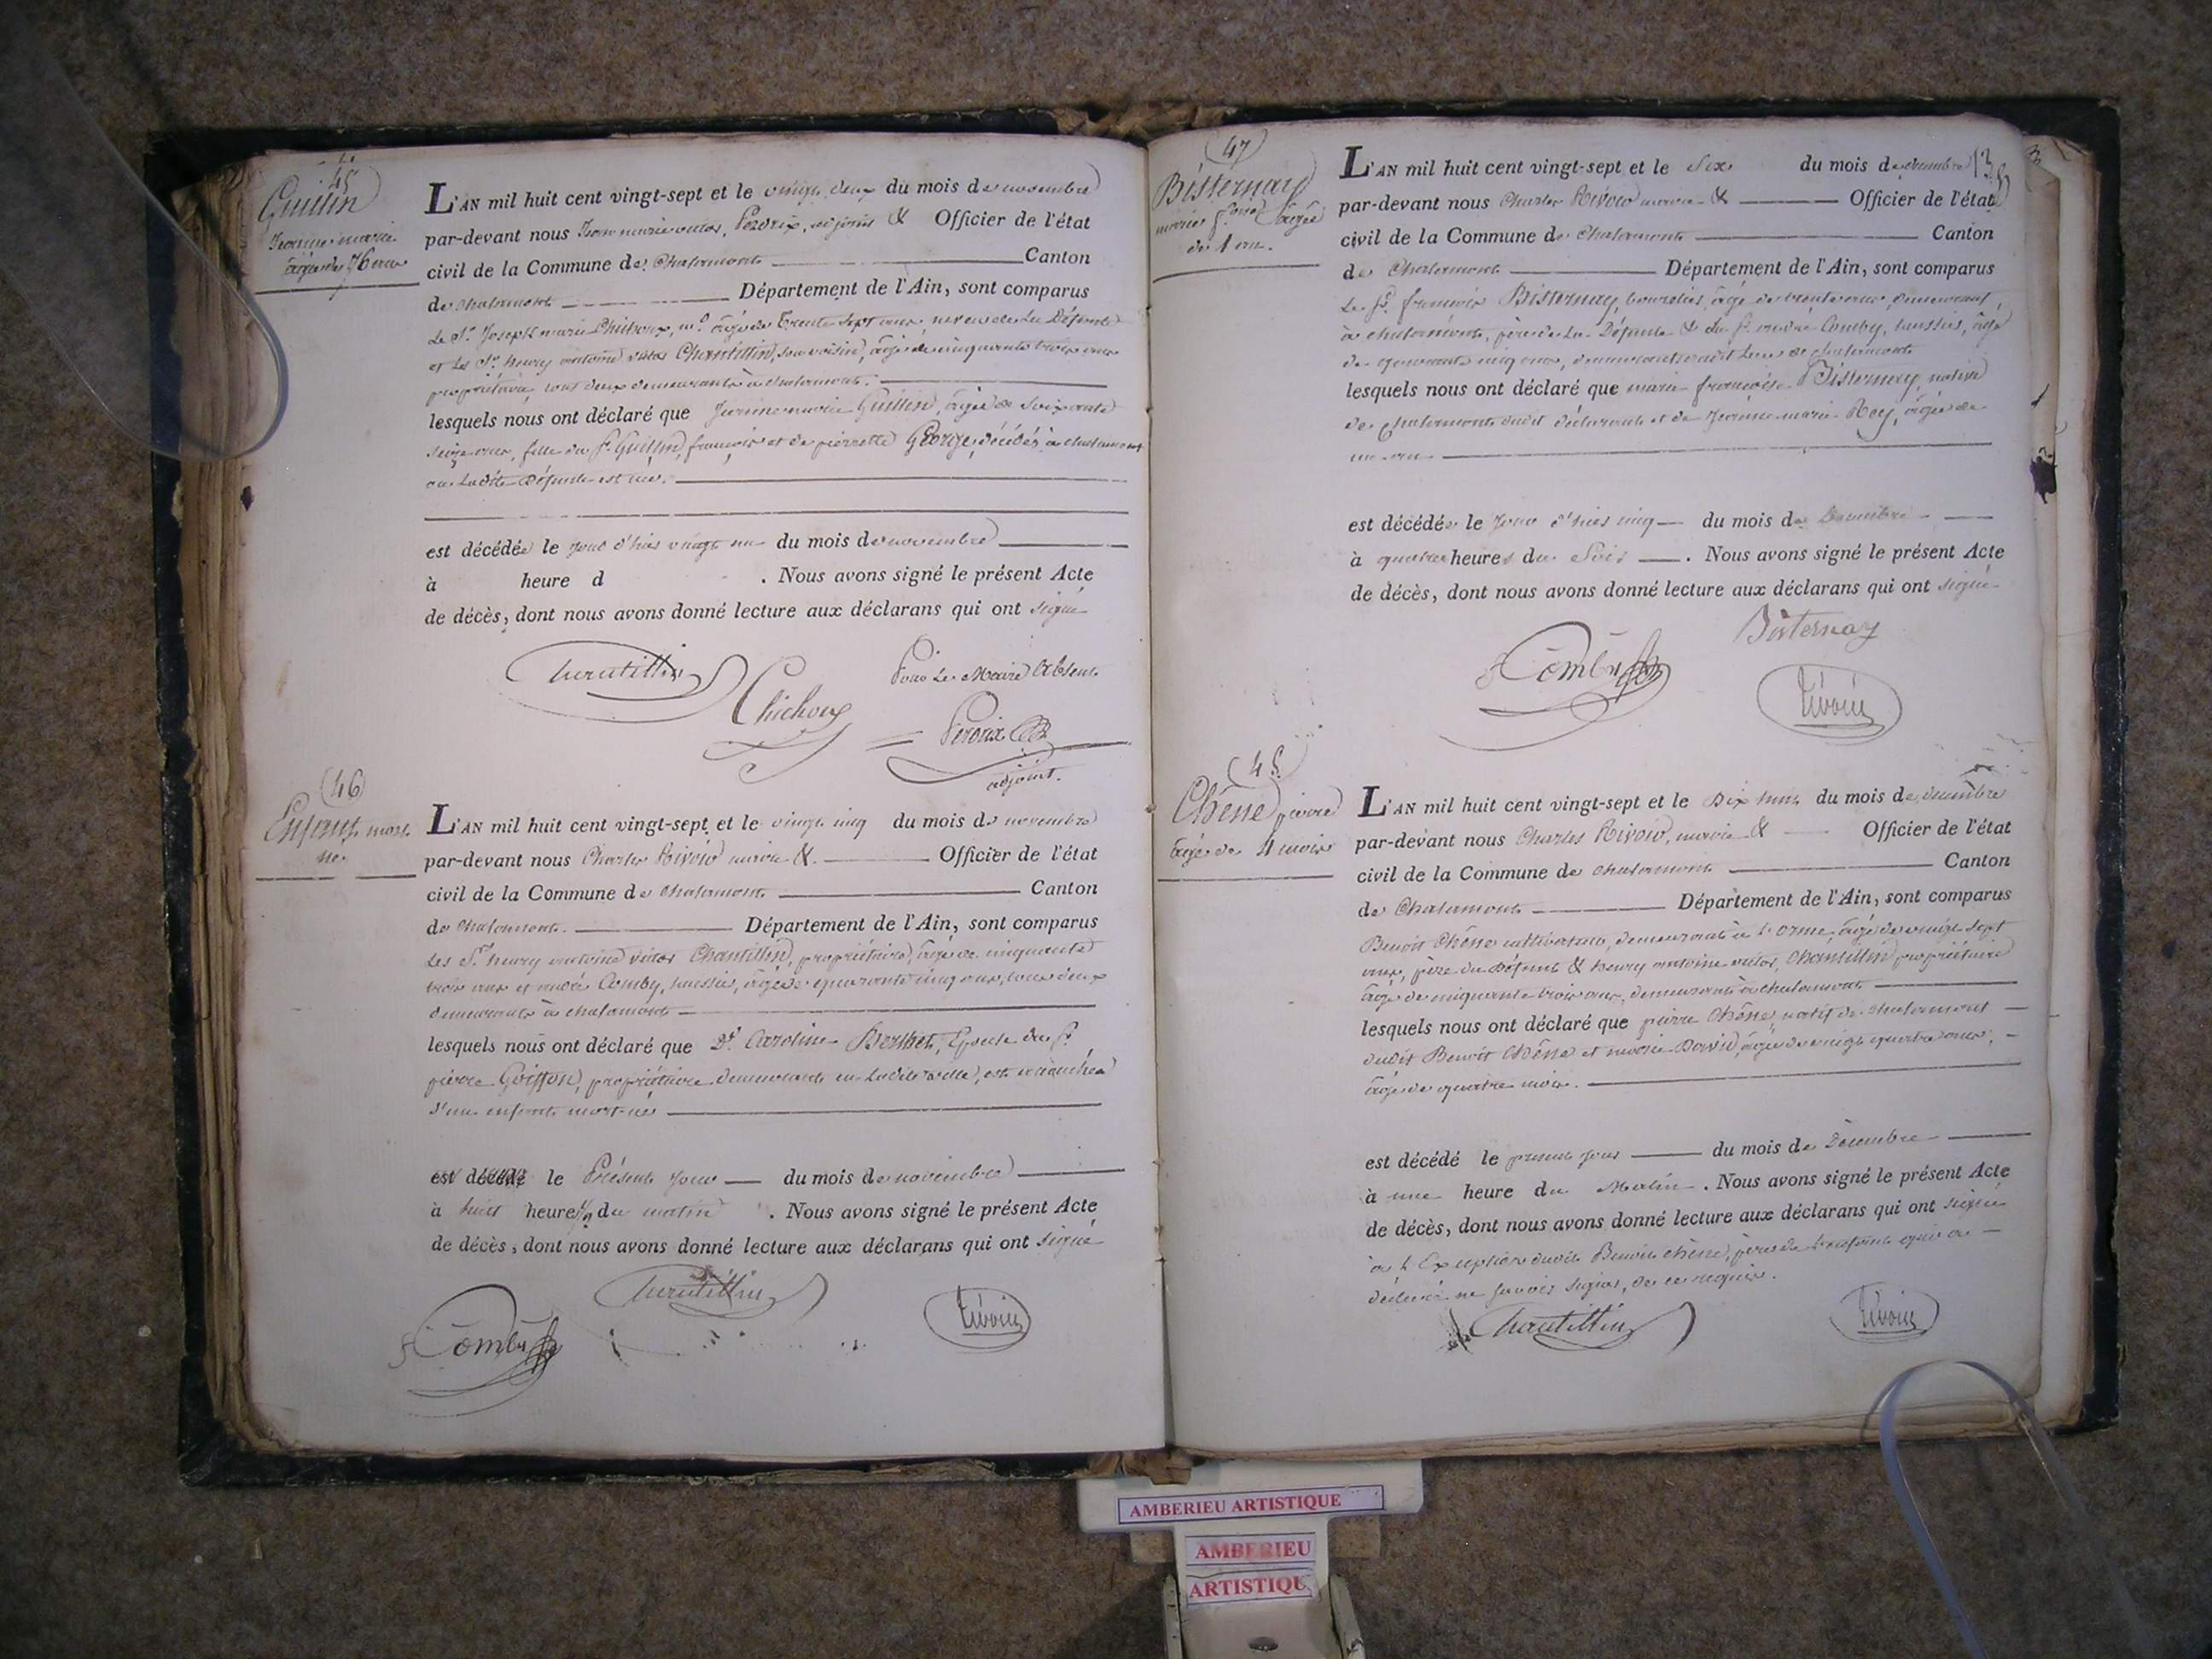 45
Guillin
Jeanne marie
âgée de 76 ans
L'AN mil huit cent vingt-sept et le vingt deux du mois de novembre
par-devant nous Jean marie victor Perdrix, adjoint & Officier de l'état
civil de la Commune de Chalamont Canton
de chalamont Département de l'Ain, sont comparus
Le Sr. Joseph marie Chichoux, md. âgé de Trente sept ans, neveu de La Défunte
et Le Sr. henry antoine victor Chantillin, son voisin, âgé de cinquante trois ans
propriétaire, tout deux demeurants à chalamont.
lesquels nous ont déclaré que Jeanne marie Guillin, âgée de soixante
seize ans, fille du Sr. Guillin, françois et de pierrette George, décédés à chalamont
où Ladite Défunte est née.
est décédée le jour d'hier vingt un du mois de novembre
à heure d . Nous avons signé le présent Acte
de décès, dont nous avons donné lecture aux déclarans qui ont signé
Chantillin
Chichoux
Pour Le Maire Absent
Perdrix
adjoint.
(46)
Enfant mort
né.
L'AN mil huit cent vingt-sept et le vingt cinq du mois de novembre
par-devant nous Charles Rivoir maire & Officier de l'état
civil de la Commune de chalamont Canton
de chalamont. Département de l'Ain, sont comparus
Les Sr. henry antoine victor Chantillin, propriétaire, âgé de cinquante
trois ans et andré Comby, huissier, âgé de quarante cinq ans, tous deux
demeurants à chalamont
lesquels nous ont déclaré que De. Caroline Berthet, Epouse du Sr.
pierre Goiffon, propriétaire demeurants en Ladite ville, est accouchée
d'un enfant mort-né
est décédé le Présent jour du mois de novembre
à huit heures 1/2 du matin . Nous avons signé le présent Acte
de décès, dont nous avons donné lecture aux déclarans qui ont signé
Chantillin
Comby
Rivoir
(47)
Bisternay
marie fçoise âgée
de 1 an.
L'AN mil huit cent vingt-sept et le Six du mois de décembre
par-devant nous Charles Rivoir maire & Officier de l'état
civil de la Commune de Chalamont Canton
de Chalamont Département de l'Ain, sont comparus
Le Sr. françois Bisternay, bourrelier, âgé de trente ans, demeurant
à chalamont, père de La Défunte & du Sr. andré Comby, huissier, âgé
de quarante cinq ans, demeurants audit Lieu de chalamont
lesquels nous ont déclaré que marie françoise Bisternay, native
de Chalamont dudit déclarant et de Jeanne marie Rey, âgée de
un an
est décédée le jour d'hier cinq du mois de Décembre
à quatre heures du Soir . Nous avons signé le présent Acte
de décès, dont nous avons donné lecture aux déclarans qui ont signé
Bisternay
Comby
Rivoir
(48)
Chêne pierre
âgé de 4 mois
L'AN mil huit cent vingt-sept et le Dix huit du mois de décembre
par-devant nous Charles Rivoir, maire & Officier de l'état
civil de la Commune de chalamont Canton
de Chalamont Département de l'Ain, sont comparus
Benoit Chêne cultivateur, demeurant à L'orme, âgé de vingt sept
ans, père du Défunt & henry antoine victor Chantillin propriétaire
âgé de cinquante trois ans, demeurant à chalamont
lesquels nous ont déclaré que pierre Chêne, natif de chalamont
dudit Benoit Chêne et marie David, âgée de vingt quatre ans,
âgé de quatre mois.
est décédé le présent jour du mois de Décembre
à une heure du Matin . Nous avons signé le présent Acte
de décès, dont nous avons donné lecture aux déclarans qui ont signé
à L'Exception dudit Benoit chêne, père de L'enfant qui a
déclaré ne savoir signer, de ce requis.
Chantillin
Rivoir
AMBERIEU ARTISTIQUE
AMBERIEU
ARTISTIQU